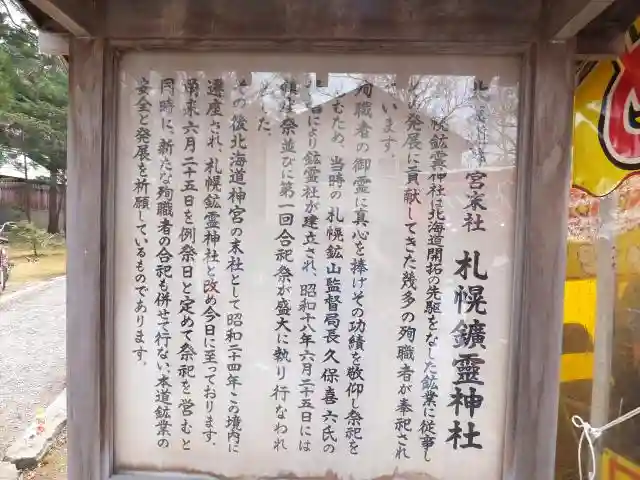 北海道神宮末社
札幌鑛霊神社
札幌鉱霊神社は北海道開拓の先駆をなした鉱業に従事し
その発展に貢献してきた幾多の殉職者が奉祀され
ています。
殉職者の御霊に真心を捧げその功績を敬仰し祭祀を
もため、当時の札幌鉱山監督局長久保喜六氏の
により鉱霊社が建立され、昭和十八年六月二十五日には
鎮座祭並びに第一回合祀祭が盛大に執り行なわれ
た。
その後北海道神宮の末社として昭和二十四年この境内に
遷座され、札幌鉱霊神社と改め今日に至っております。
爾来六月二十五日を例祭日と定めて祭祀を営むと
同時に、新たな殉職者の合祀も併せて行ない、本道鉱業の
安全と発展を祈願しているものであります。